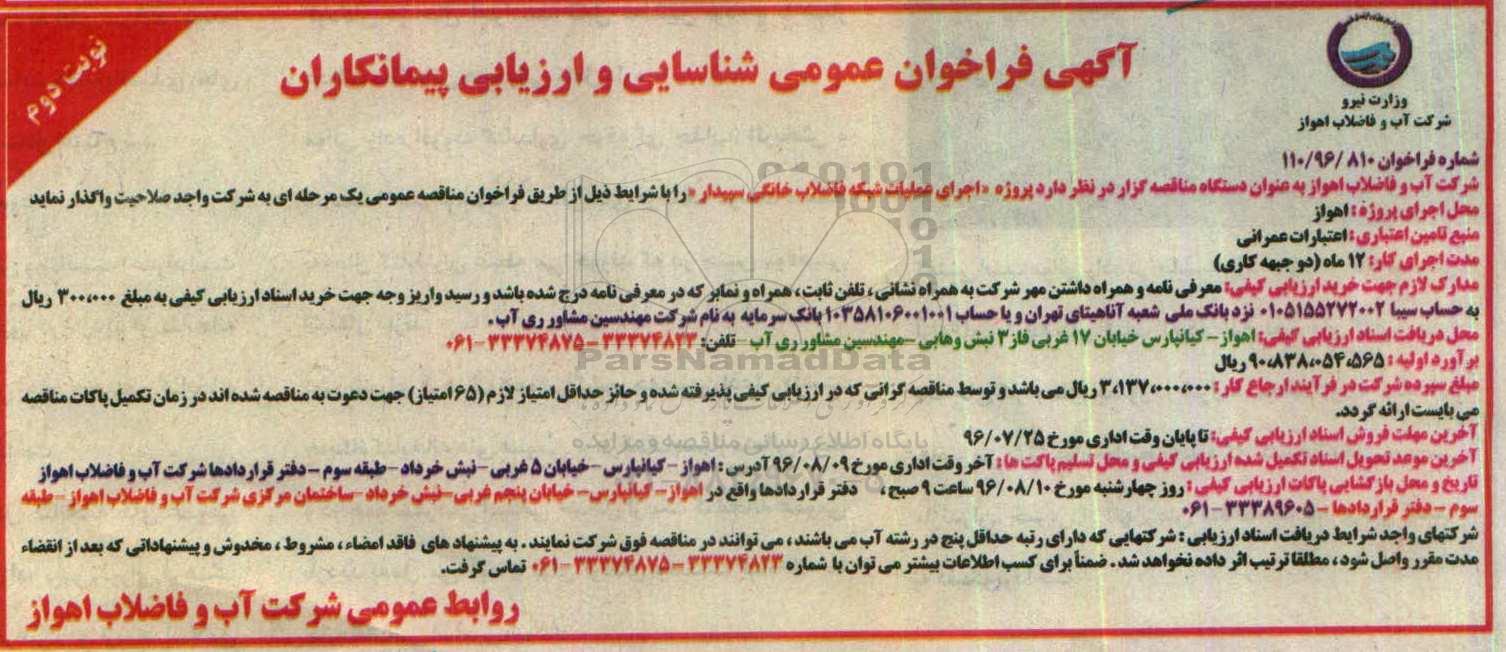 نوبت دوم
آگهی فراخوان عمومی شناسایی و ارزیابی پیمانکاران
وزارت نیرو
شرکت آب و فاضلاب اهواز
شماره فراخوان ۸۱۰ /۱۱۰/۹۶
شرکت آب و فاضلاب اهواز به عنوان دستگاه مناقصه گزار در نظر دارد پروژه «اجرای عملیات شبکه فاضلاب خانگی سپیدار» را با شرایط ذیل از طریق فراخوان مناقصه عمومی یک مرحله ای به شرکت واجد صلاحیت واگذار نماید
محل اجرای پروژه: اهواز
منبع تامین اعتباری: اعتبارات عمرانی
مدت اجرای کار: ۱۲ ماه (دو جبهه کاری)
مدارک لازم جهت خرید ارزیابی کیفی: معرفی نامه و همراه داشتن مهر شرکت به همراه نشانی، تلفن ثابت، همراه و نمابر که در معرفی نامه درج شده باشد و رسید واریز وجه جهت خرید اسناد ارزیابی کیفی به مبلغ ۳۰۰،۰۰۰ ریال
به حساب سیبا ۰۱۰۵۱۵۵۲۷۲۰۰۲ نزد بانک ملی شعبه آناهیتای تهران و یا حساب ۱۰۳۵۸۱۰۶۰۰۱۰۰۱ بانک سرمایه به نام شرکت مهندسین مشاور ری آب.
محل دریافت اسناد ارزیابی کیفی: اهواز - کیانپارس خیابان ۱۷ غربی فاز ۳ نبش وهابی - مهندسین مشاور ری آب - تلفن: ۳۳۳۷۴۸۲۳ - ۳۳۳۷۴۸۷۵ - ۰۶۱
برآورد اولیه: ۹۰،۸۳۸،۰۵۴،۵۶۵ ریال
مبلغ سپرده شرکت در فرآیند ارجاع کار: ۳،۱۳۷،۰۰۰،۰۰۰ ریال می باشد و توسط مناقصه گرانی که در ارزیابی کیفی پذیرفته شده و حائز حداقل امتیاز لازم (۶۵ امتیاز) جهت دعوت به مناقصه شده اند در زمان تکمیل پاکات مناقصه
می بایست ارائه گردد.
آخرین مهلت فروش اسناد ارزیابی کیفی: تا پایان وقت اداری مورخ ۹۶/۰۷/۲۵
آخرین موعد تحویل اسناد تکمیل شده ارزیابی کیفی و محل تسلیم پاکت ها: آخر وقت اداری مورخ ۹۶/۰۸/۰۹ آدرس: اهواز - کیانپارس - خیابان ۵ غربی - نبش خرداد - طبقه سوم - دفتر قراردادها شرکت آب و فاضلاب اهواز
تاریخ و محل بازگشایی پاکات ارزیابی کیفی: روز چهارشنبه مورخ ۹۶/۰۸/۱۰ ساعت ۹ صبح، دفتر قراردادها واقع در اهواز - کیانپارس - خیابان پنجم غربی - نبش خرداد - ساختمان مرکزی شرکت آب و فاضلاب اهواز - طبقه
سوم - دفتر قراردادها - ۳۳۳۸۹۶۰۵ - ۰۶۱
شرکتهای واجد شرایط دریافت اسناد ارزیابی: شرکتهایی که دارای رتبه حداقل پنج در رشته آب می باشند، می توانند در مناقصه فوق شرکت نمایند. به پیشنهاد های فاقد امضاء، مشروط، مخدوش و پیشنهاداتی که بعد از انقضاء
مدت مقرر واصل شود، مطلقا ترتیب اثر داده نخواهد شد. ضمناً برای کسب اطلاعات بیشتر می توان با شماره ۳۳۳۷۴۸۲۳ - ۳۳۳۷۴۸۷۵ - ۰۶۱ تماس گرفت.
روابط عمومی شرکت آب و فاضلاب اهواز
ParsNamadData
پایگاه اطلاع رسانی مناقصه و مزایده